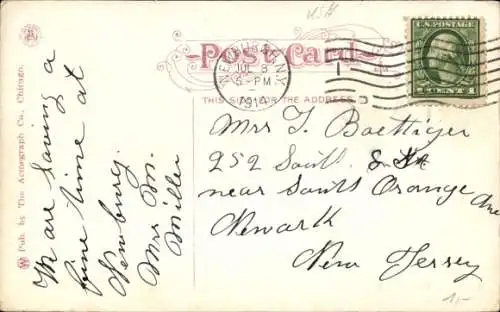 USA
Post Card
NEWBURGH, N.Y.
JUL 8
5-PM
1914
U.S. POSTAGE
1 CENT 1
THIS SIDE FOR THE ADDRESS.
Pub. by The Acmegraph Co., Chicago.
We are having a
fine time at
Newburg.
Mrs M.
Miller
Mrs T. Boettiger
252 South
near South Orange Ave
Newark
New Jersey
1,-